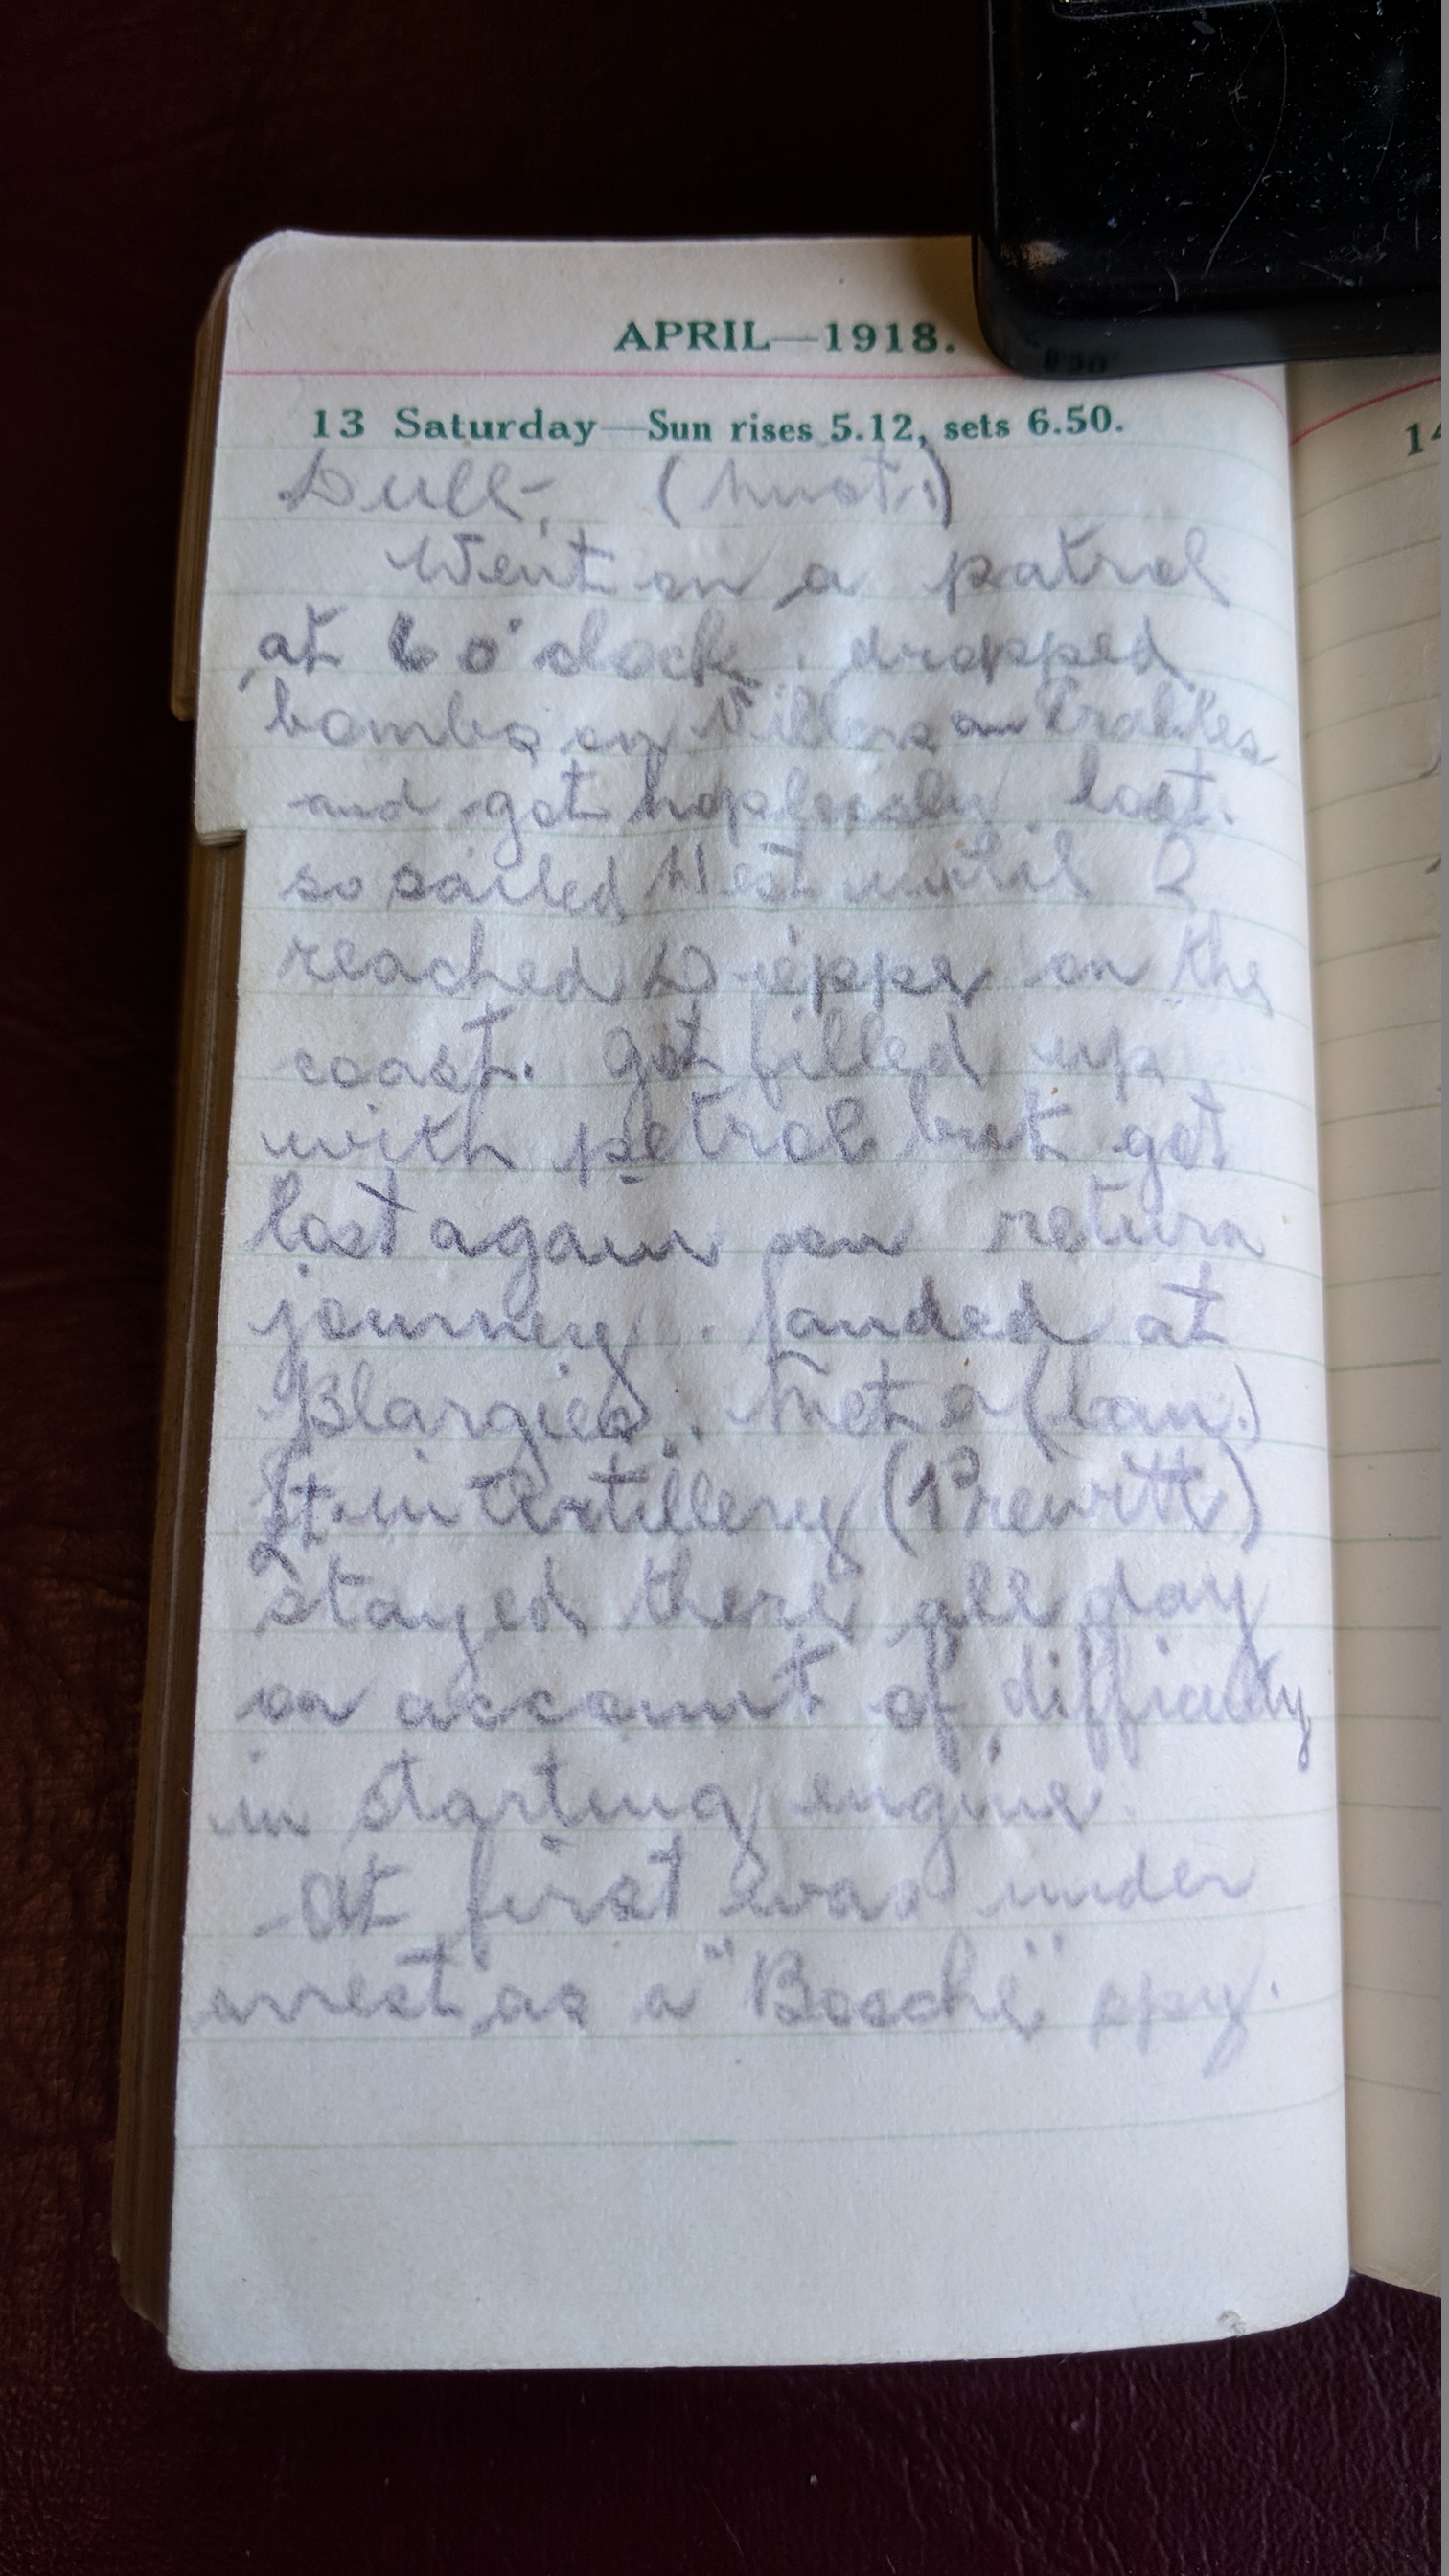 APRIL—1918.
13 Saturday—Sun rises 5.12, sets 6.50.
Dull, (mist.)
Went on a patrol
at 6 o'clock. dropped
bombs on Villers
and got hoplessly lost.
so sailed West until I
reached Dieppe on the
coast. got filled up
with petrol but got
lost again on return
journey. landed at
Blargies. Met a (Can.)
Lt. in Artillery (Prewitt)
Stayed there all day
on account of difficulty
in starting engine.
- At first was under
arrest as a "Bosche" spy.
14